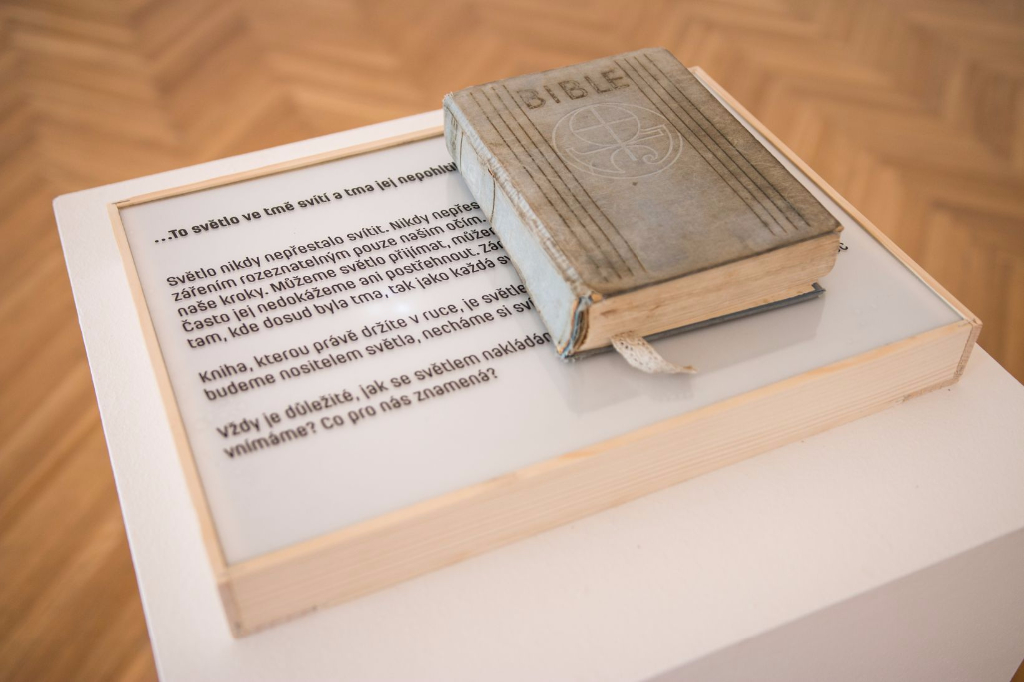 BIBLE
...To světlo ve tmě svítí a tma jej nepohltil
Světlo nikdy nepřestalo svítit. Nikdy nepřes
zářením rozeznatelným pouze našim očím.
naše kroky. Můžeme světlo přijímat, může
Často jej nedokážeme ani postřehnout. Zář
tam, kde dosud byla tma, tak jako každá sv
Kniha, kterou právě držíte v ruce, je světle
budeme nositelem světla, necháme si sv
Vždy je důležité, jak se světlem nakládán
vnímáme? Co pro nás znamená?